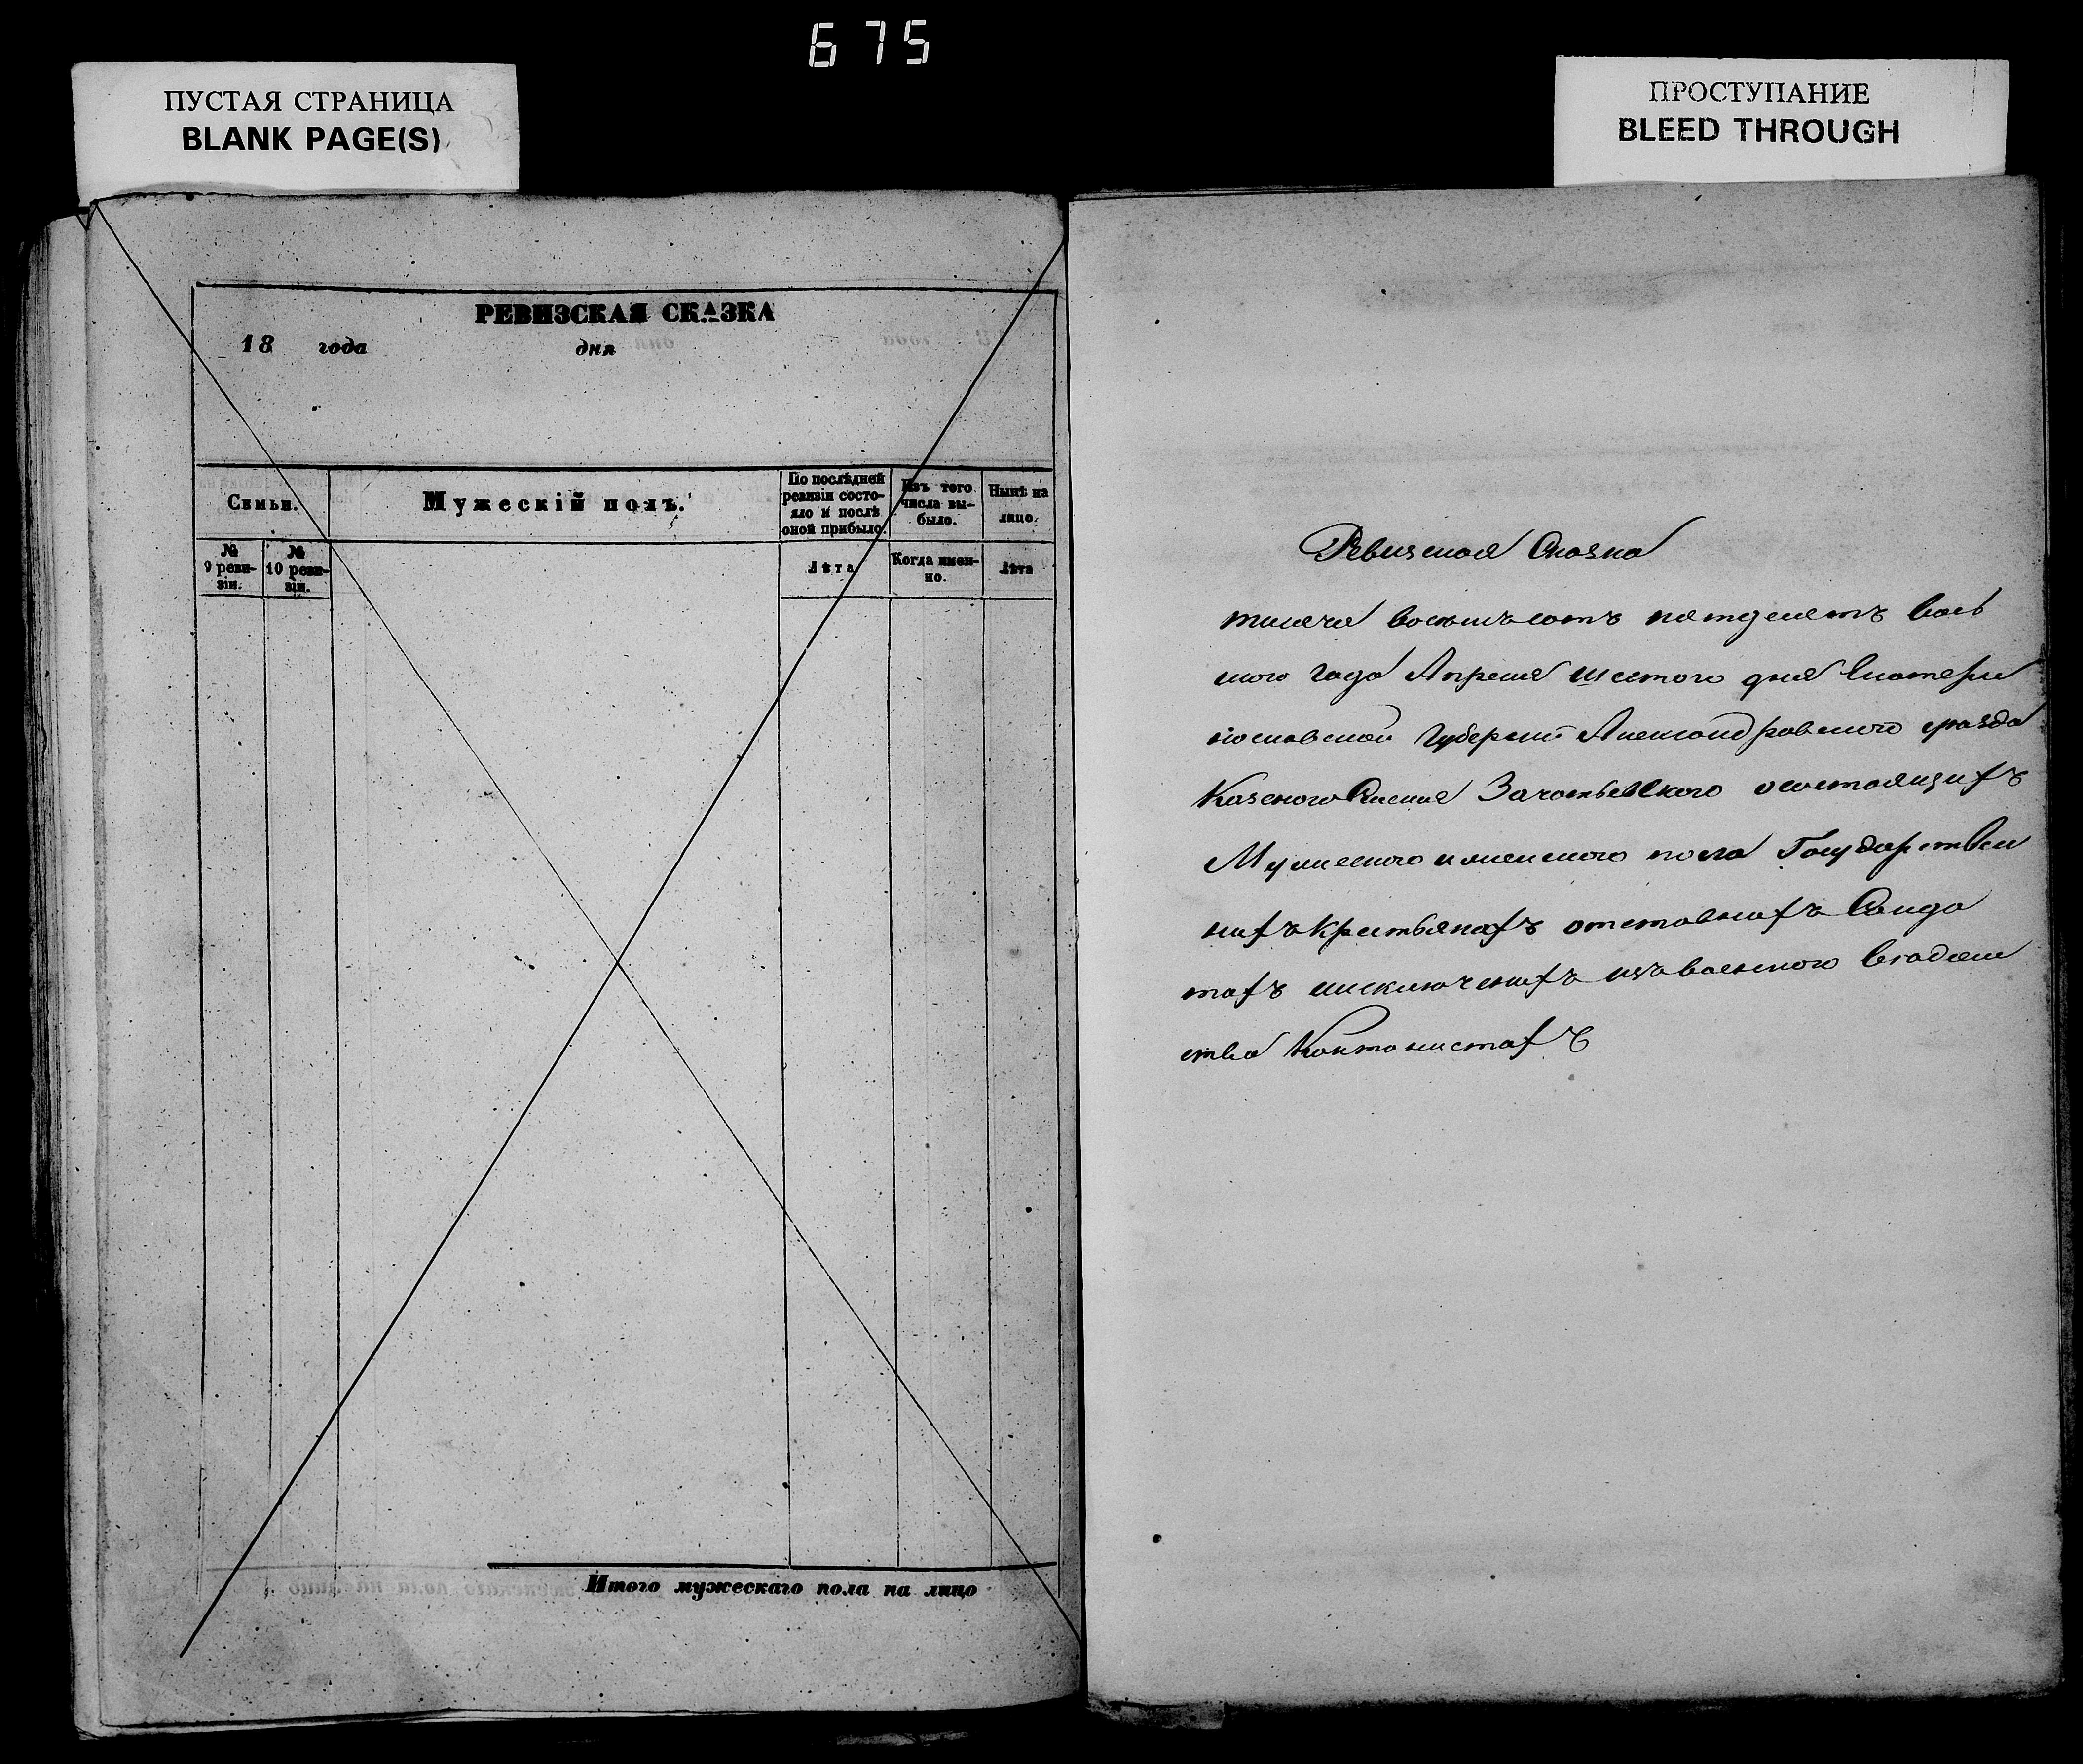 675
ПУСТАЯ СТРАНИЦА
BLANK PAGE(S)
ПРОСТУПАНИЕ
BLEED THROUGH
РЕВИЗСКАЯ СКАЗКА
18 года дня
Семьи.
Мужескій полъ.
По послѣдней
ревизіи состо-
яло и послѣ
оной прибыло.
Изъ того
числа вы-
было.
Нынѣ на
лицо.
№
9 реви-
зіи.
№
10 реви-
зіи.
Лѣта
Когда имен-
но.
Лѣта
Итого мужескаго пола на лицо
Ревизская Сказка
тысяча восемъсотъ пятдесятъ вось
мого года Апреля шестого дня Екатери
нославской Губерніи Александровского уезда
Казеного Селения Зачатьевского осостоящихъ
Мужеского иженского пола Государствен
ныхъ крестьянахъ отставныхъ Солда
тахъ иисключеныхъ изъ военного
ства Кантонистахъ